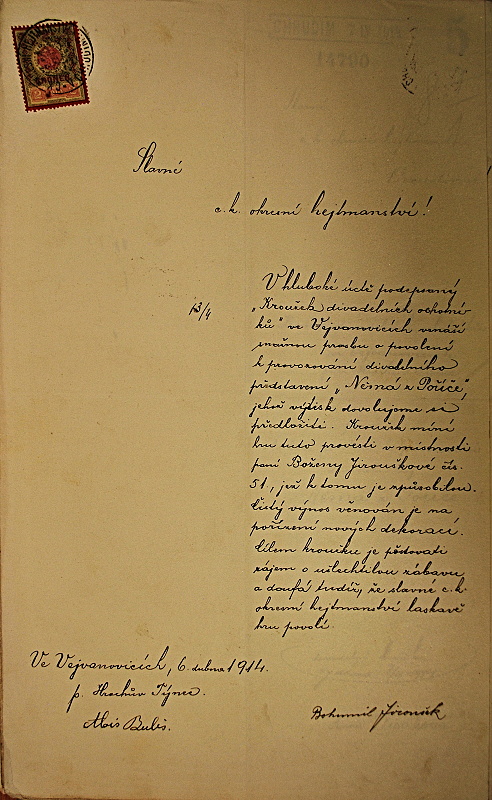 Slavné
c. k. okresní hejtmanství!
V hluboké úctě podepsaný
„Kroužek divadelních ochotní-
ků" ve Vejvanovicích vznáší
snažnou prosbu o povolení
k provozování divadelního
představení „Němá z Poříče",
jehož výtisk dovolujeme si
předložiti. Kroužek míní
hru tuto provésti v místnosti
paní Boženy Jirouškové čís.
51, jež k tomu je způsobilou.
Čistý výnos věnován je na
pořízení nových dekorací.
Cílem kroužku je pěstovati
zájem o ušlechtilou zábavu
a doufá tudíž, že slavné c. k.
okresní hejtmanství laskavě
hru povolí.
Ve Vejvanovicích, 6. dubna 1914.
p. Hrochův Týnec.
Alois
Bohumil